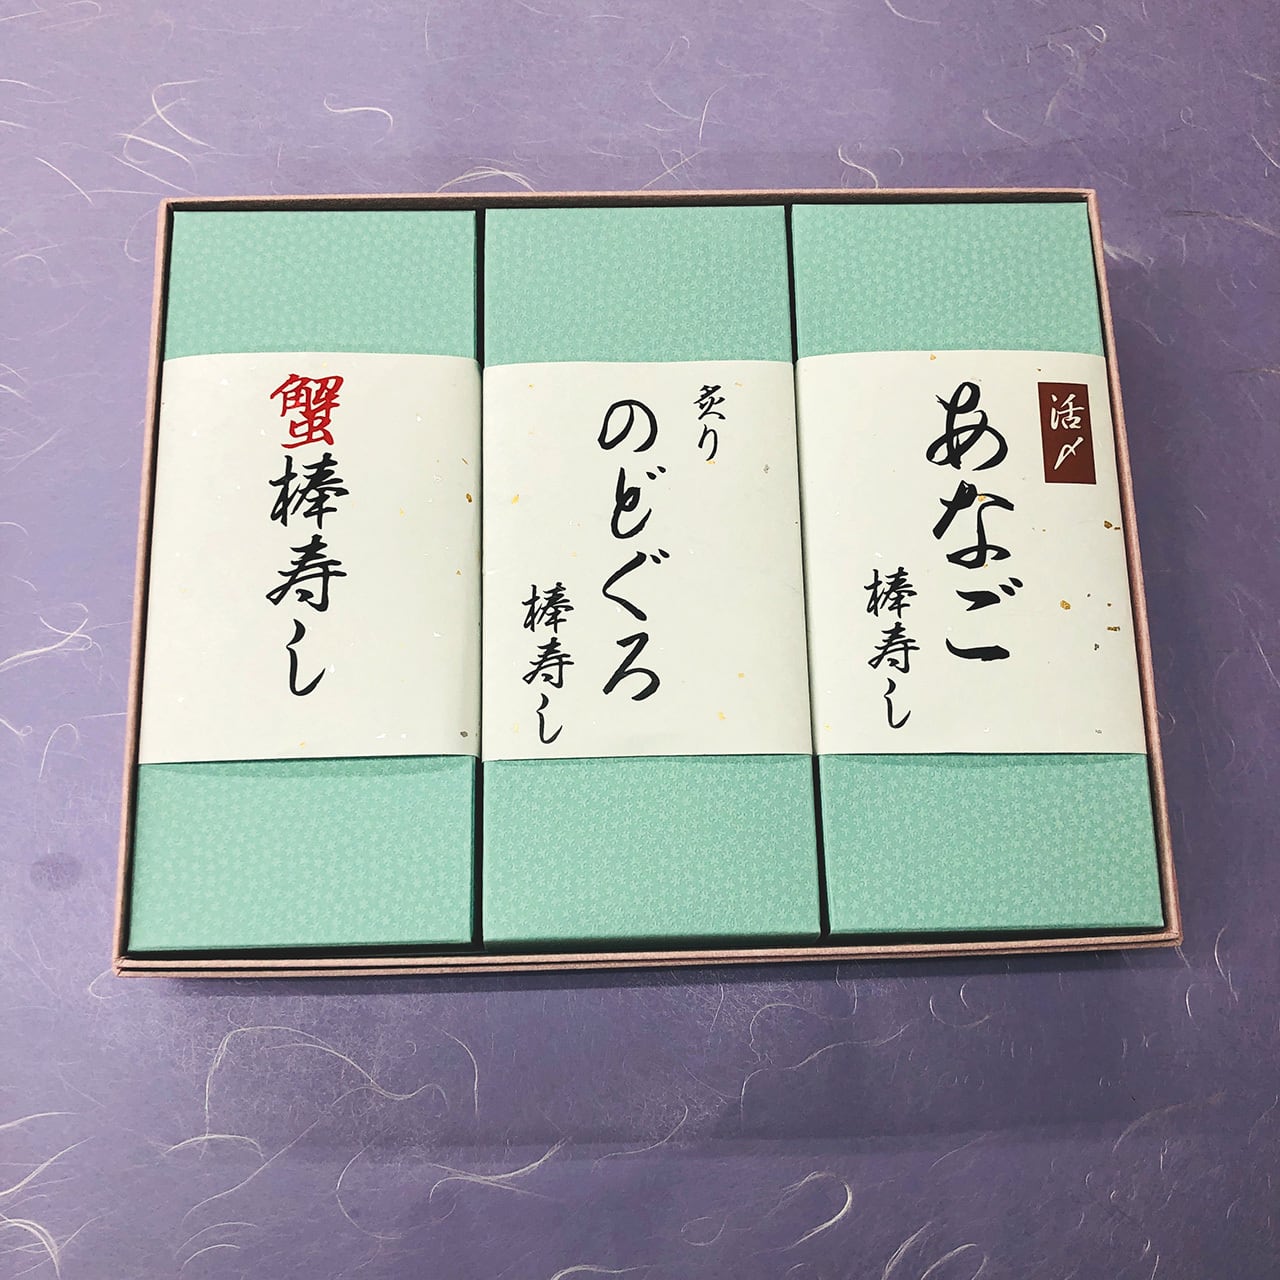 活〆
あなご
棒寿し
炙り
のどぐろ
棒寿し
蟹棒寿し